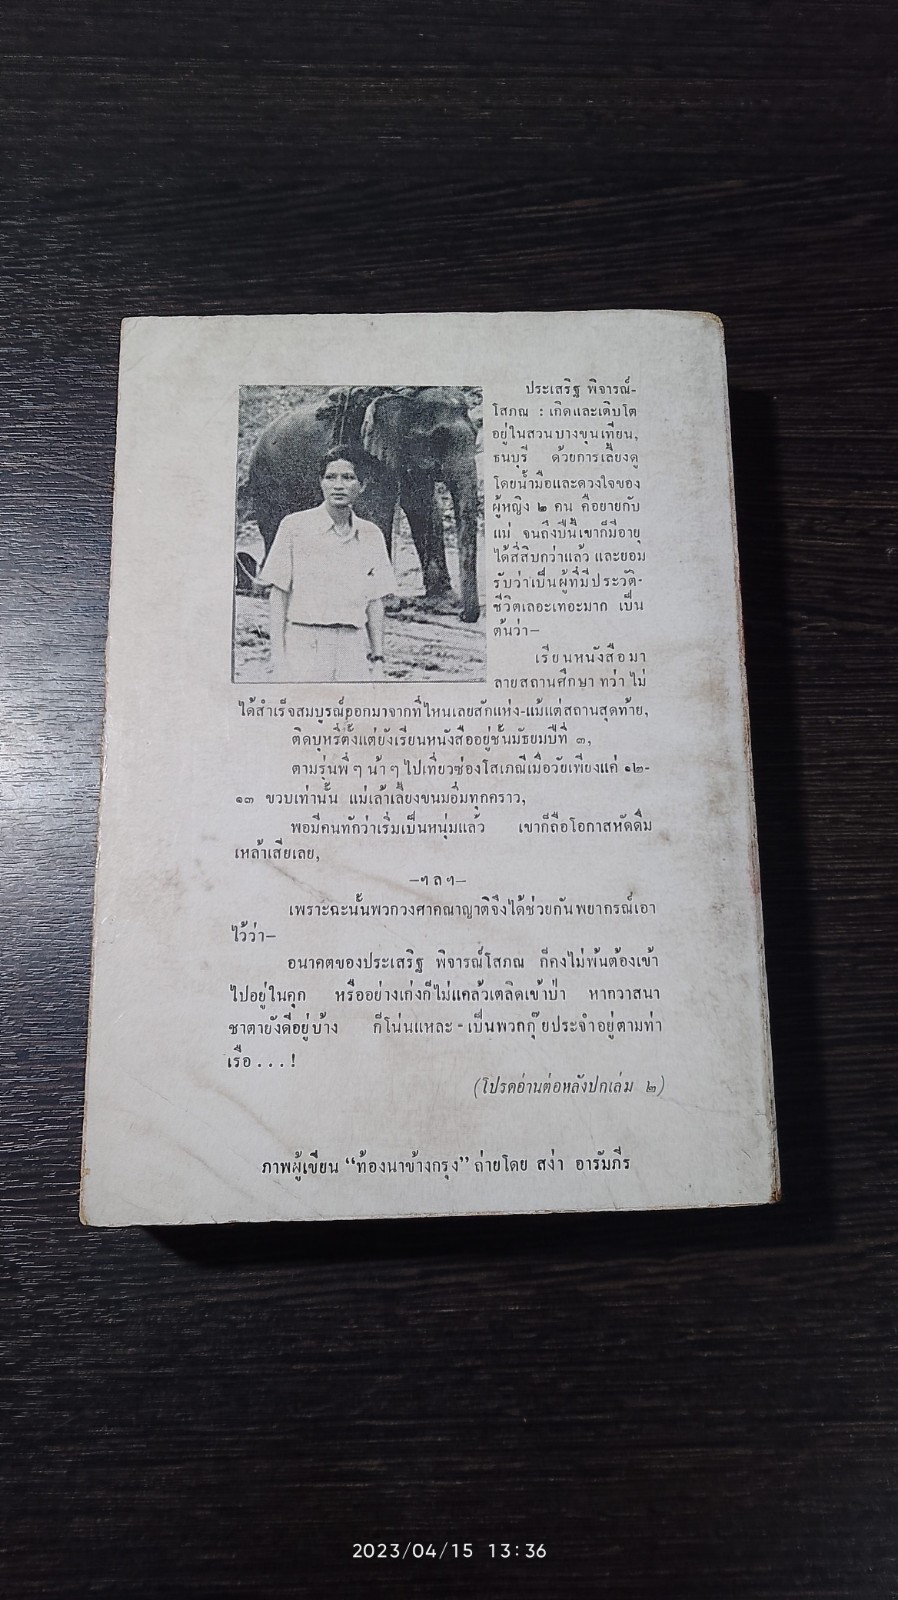 ประเสริฐ พิจารณ์-
โสภณ : เกิดและเติบโต
อยู่ในสวนบางขุนเทียน,
ธนบุรี ด้วยการเลี้ยงดู
โดยน้ำมือและดวงใจของ
ผู้หญิง ๒ คน คือยายกับ
แม่ จนถึงปีนี้เขาก็มีอายุ
ได้สี่สิบกว่าแล้ว และยอม
รับว่าเป็นผู้ที่มีประวัติ-
ชีวิตเลอะเทอะมาก เป็น
ต้นว่า—
เรียนหนังสือมา
ลายสถานศึกษา ทว่า ไม่
ได้สำเร็จสมบูรณ์ออกมาจากที่ไหนเลยสักแห่ง-แม้แต่สถานสุดท้าย,
ติดบุหรี่ตั้งแต่ยังเรียนหนังสืออยู่ชั้นมัธยมปีที่ ๓,
ตามรุ่นพี่ ๆ น้า ๆ ไปเที่ยวซ่องโสเภณีเมื่อวัยเพียงแค่ ๑๒-
๑๓ ขวบเท่านั้น แม่เล้าเลี้ยงขนมอิ่มทุกคราว,
พอมีคนทักว่าเริ่มเป็นหนุ่มแล้ว เขาก็ถือโอกาสหัดดื่ม
เหล้าเสียเลย,
—ฯลฯ—
เพราะฉะนั้นพวกวงศาคณาญาติจึงได้ช่วยกันพยากรณ์เอา
ไว้ว่า—
อนาคตของประเสริฐ พิจารณ์โสภณ ก็คงไม่พ้นต้องเข้า
ไปอยู่ในคุก หรืออย่างเก่งก็ไม่แคล้วเตลิดเข้าป่า หากวาสนา
ชาตายังดีอยู่บ้าง ก็โน่นแหละ - เป็นพวกกุ๊ยประจำอยู่ตามท่า
เรือ . . . !
(โปรดอ่านต่อหลังปกเล่ม ๒)
ภาพผู้เขียน “ท้องนาข้างกรุง” ถ่ายโดย สง่า อารัมภีร
2023/04/15 13:36